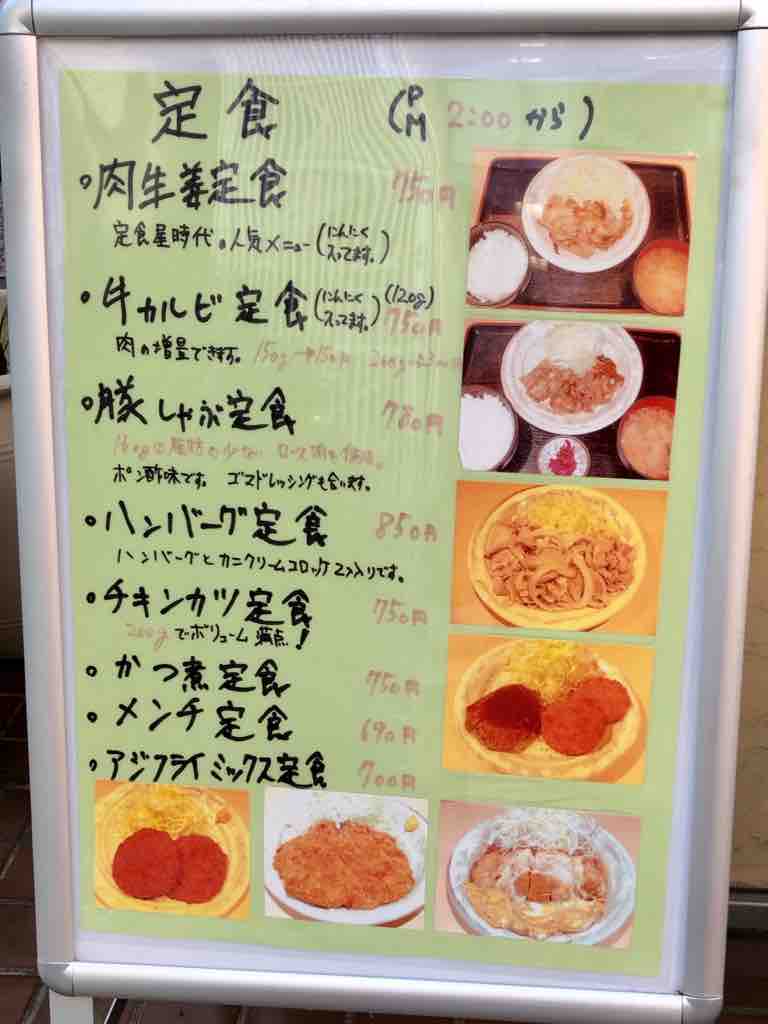 定食 (PM 2:00 から)
・肉生姜定食 750円
定食屋時代の人気メニュー(にんにく入ってます。)
・牛カルビ定食(にんにく入ってます。)(120g) 750円
肉の増量できます。 150g 200g
・豚しゃぶ定食 780円
160gの脂肪の少ない ロース肉を使用。
ポン酢味です。 ゴマドレッシングも合います。
・ハンバーグ定食 850円
ハンバーグとカニクリームコロッケ2入りです。
・チキンカツ定食 750円
200gでボリューム満点!
・かつ煮定食 750円
・メンチ定食 690円
・アジフライミックス定食 700円